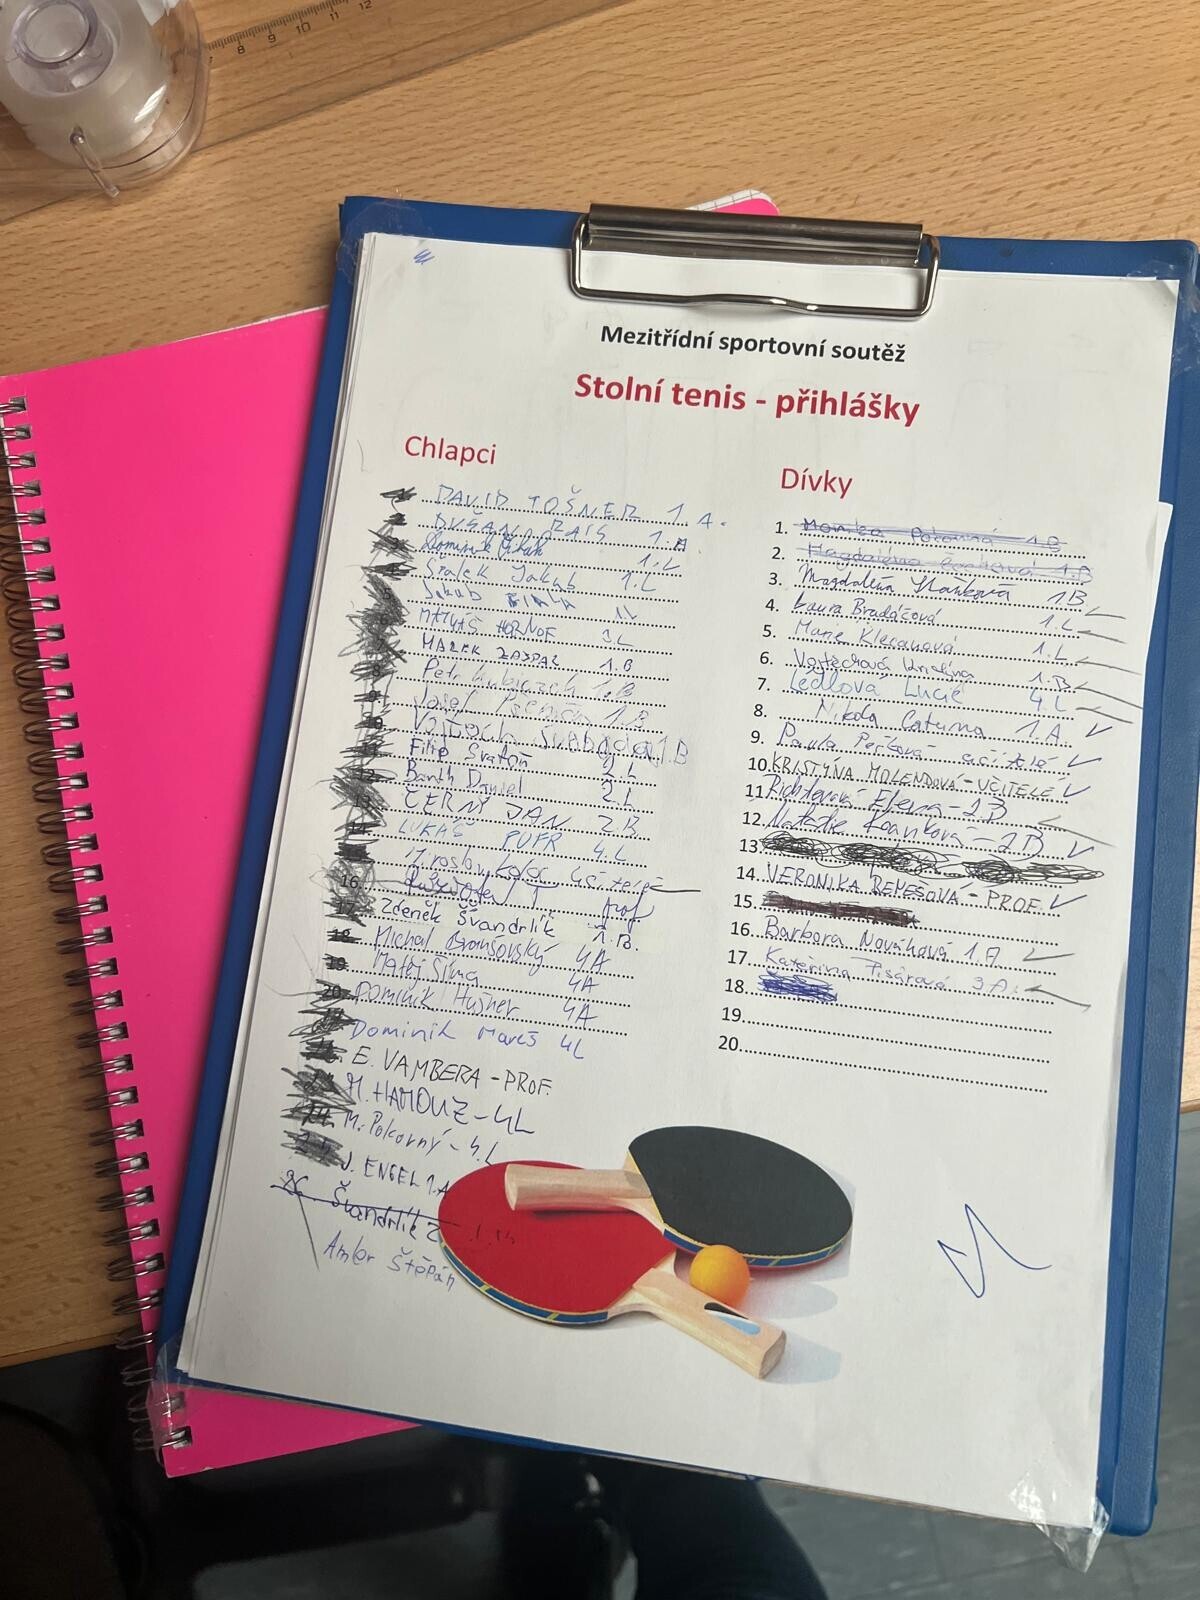 8 9 10 11 12
Mezitřídní sportovní soutěž
Stolní tenis - přihlášky
Chlapci
DAVID TOŠNER 1 A.
DUŠAN RAIS 1.A
Dominik 1.L
Špaček Jakub 1.L
Jakub FIALA 1L
MATYÁŠ HORNOF 3.L
MAREK ZASPAL 1.B
Petr 1.B
Josef 1.B
Vojtěch Svoboda 1.B
Filip Svatoň 2.L
Barth Daniel 2.L
ČERNÝ JAN 2.B
LUKÁŠ PUFR 4.L
Miroslav učitelé
16. prof
17. Zdeněk Švandrlík 1.B.
18. Michal 4A
19. Matěj Šíma 4A
20. Dominik 4A
Dominik Mareš 4L
E. VAMBERA - PROF.
M. HAMOUZ - 4L
M. Pokorný - 4.L
J. ENGEL 1.A
Švandrlík Z
Štěpán
Dívky
1. Monika 1B
2. Magdaléna 1.B
3. Magdaléna 1B
4. Laura Bradáčová 1.L
5. Marie Klecanová 1.L
6. Vojtěchová Kristýna 1.B
7. Lédlová Lucie 4.L
8. Nikola 1.A
9. Pavla učitelé
10. KRISTÝNA MOLENDOVÁ - UČITELÉ
11. Elena - 2.B
12. Natálie - 2B
13.
14. VERONIKA REMEŠOVÁ - PROF.
15.
16. Barbora Nováková 1.A
17. Kateřina Pisárová 3A.
18.
19.
20.